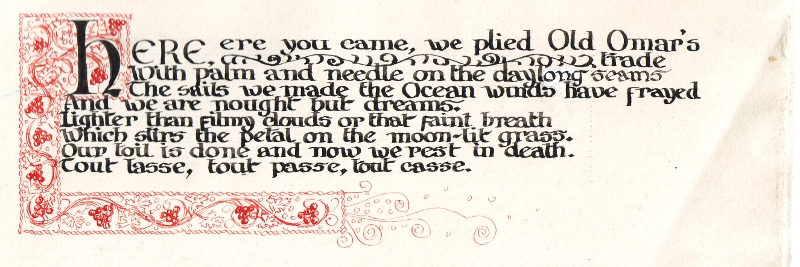 HERE, ere you came, we plied Old Omar's
trade
With palm and needle on the daylong seams
The sails we made the Ocean winds have frayed
And we are nought but dreams.
Lighter than filmy clouds or that faint breath
Which stirs the petal on the moon-lit grass.
Our toil is done and now we rest in death.
Tout lasse, tout passe, tout casse.